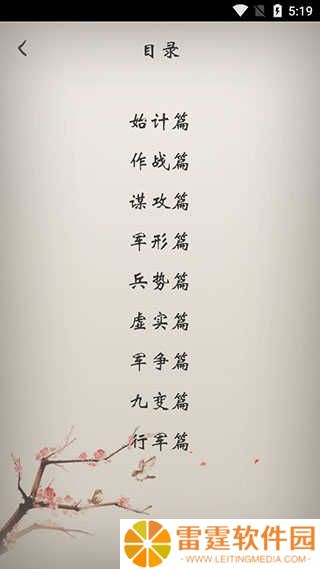 5:19
目录
始计篇
作战篇
谋攻篇
军形篇
兵势篇
虚实篇
军争篇
九变篇
行军篇
雷霆软件园
WWW.LEITINGMEDIA.COM